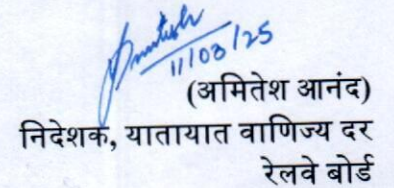 Amitesh
11/08/25
(अमितेश आनंद)
निदेशक, यातायात वाणिज्य दर
रेलवे बोर्ड